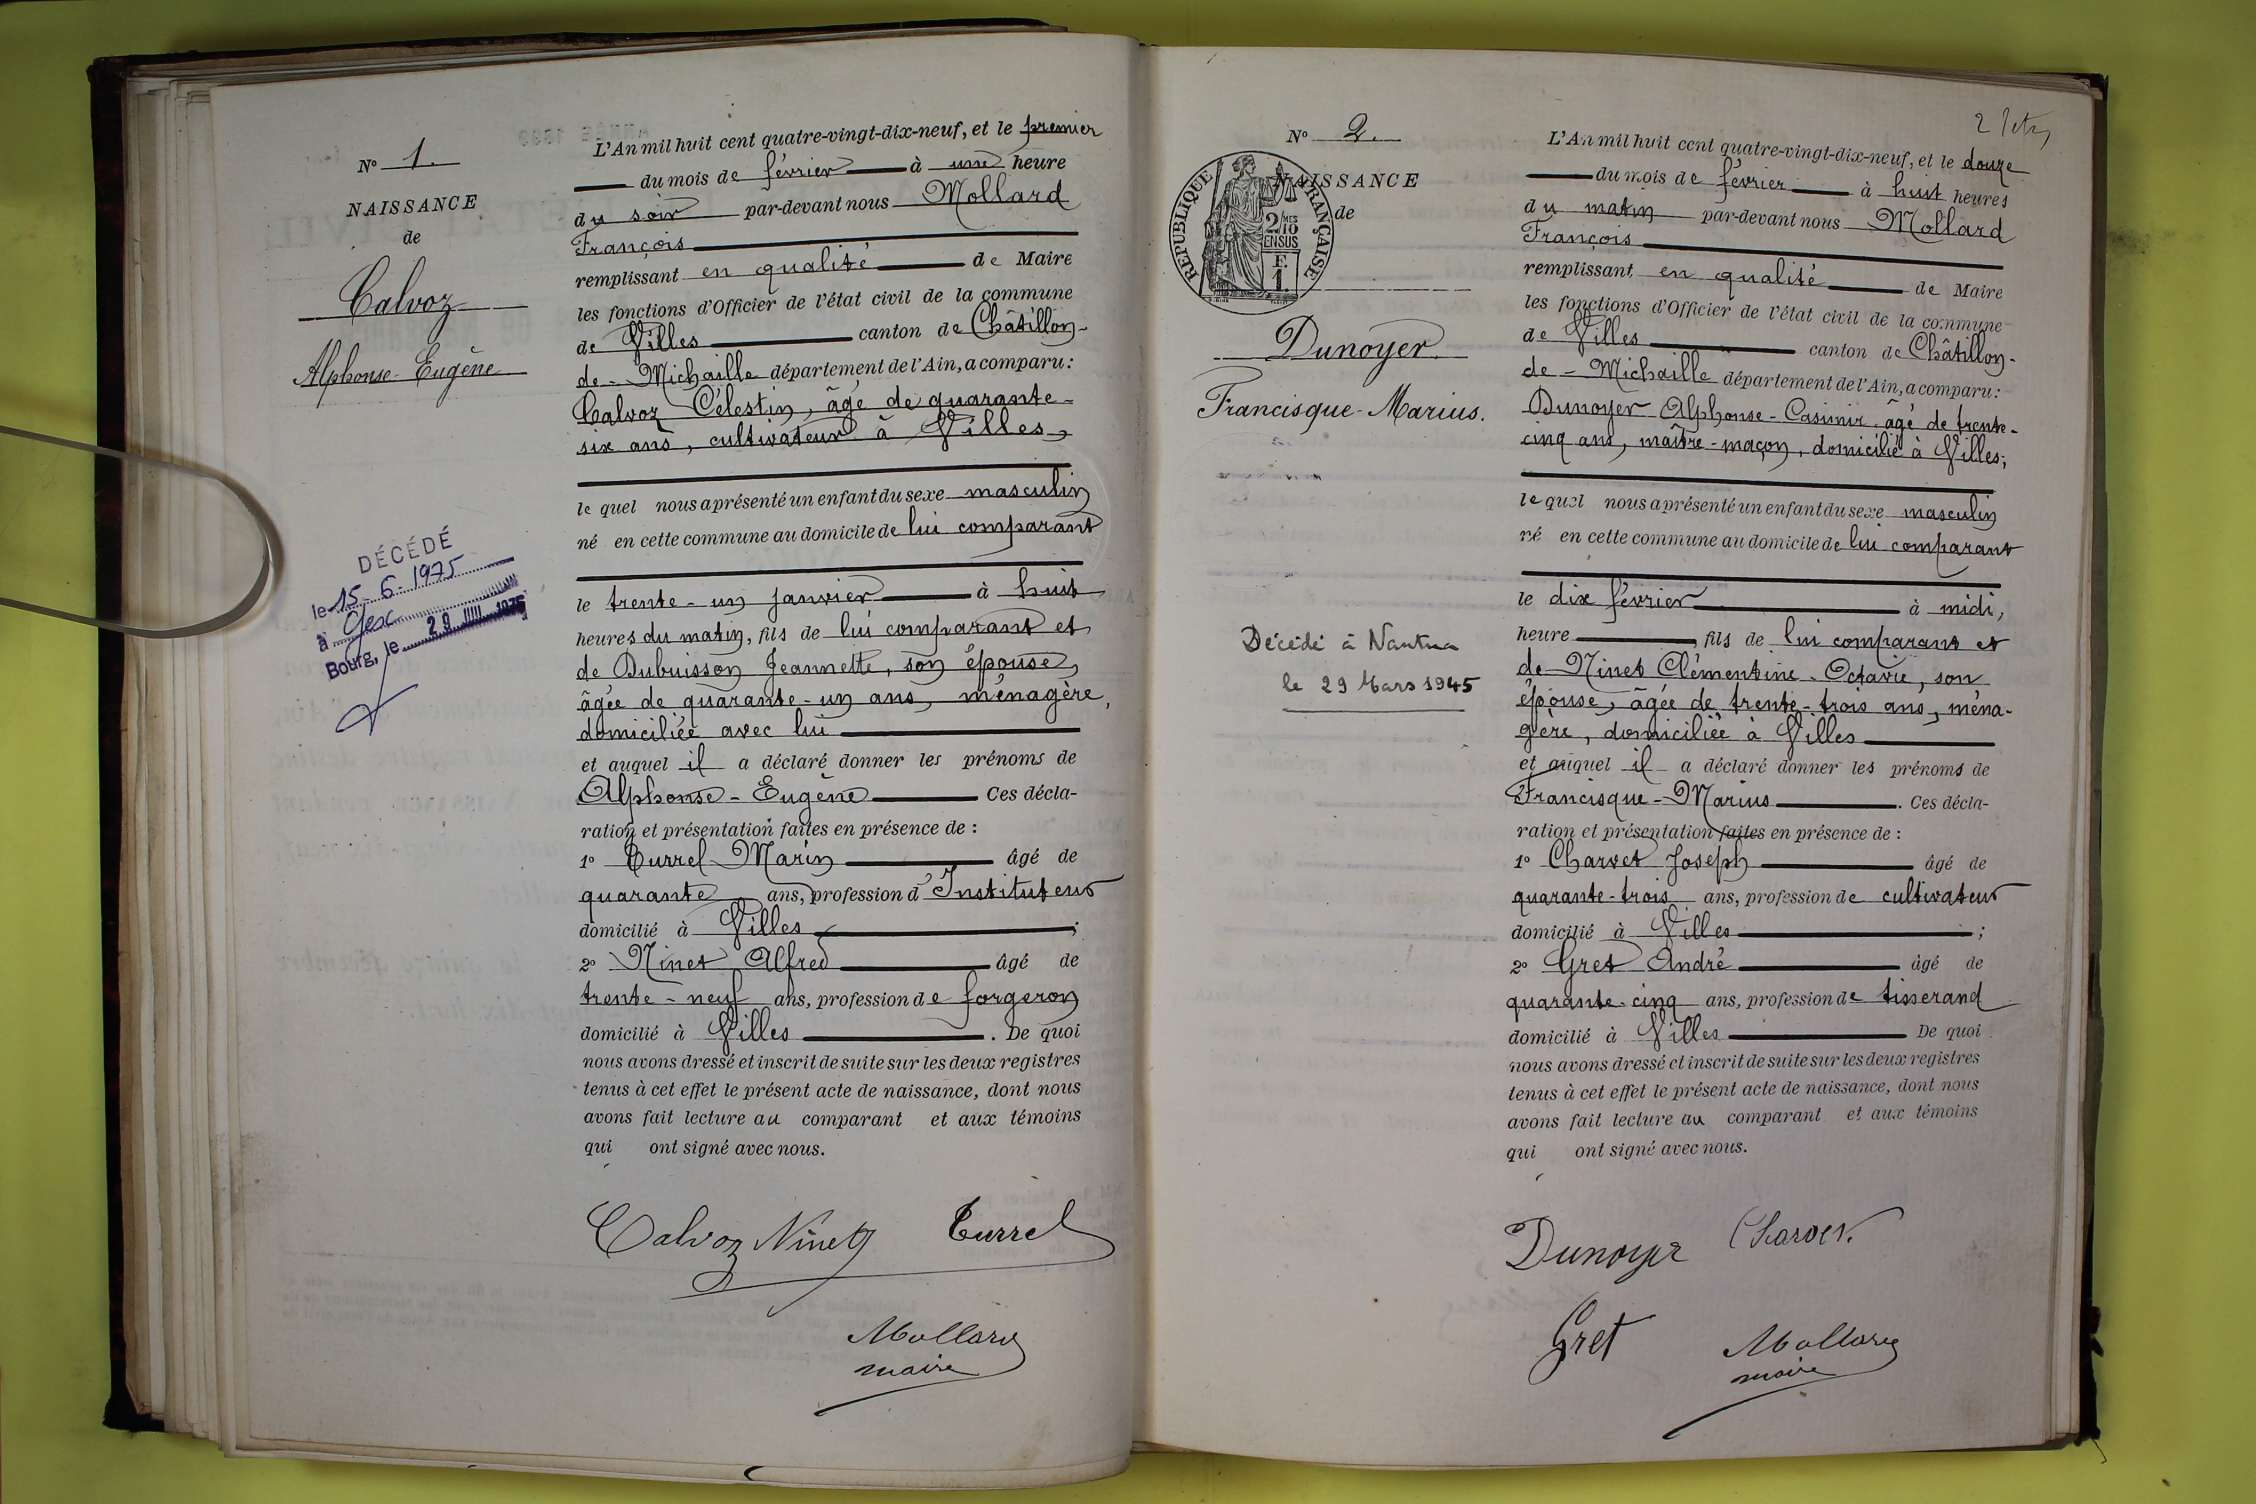 N° 1.
NAISSANCE
de
Calvoz
Alphonse-Eugène
DÉCÉDÉ
le 15-6-1975
à Gex
Bourg, le 29 JUIL 1975
L'An mil huit cent quatre-vingt-dix-neuf, et le premier
du mois de février à une heure
du soir par-devant nous Mollard
François
remplissant en qualité de Maire
les fonctions d'Officier de l'état civil de la commune
de Villes canton de Châtillon-
de-Michaille département de l'Ain, a comparu :
Calvoz Célestin, âgé de quarante-
six ans, cultivateur à Villes,
le quel nous a présenté un enfant du sexe masculin
né en cette commune au domicile de lui comparant
le trente-un janvier à huit
heures du matin, fils de lui comparant et
de Dubuisson Jeannette, son épouse,
âgée de quarante-un ans, ménagère,
domiciliée avec lui
et auquel il a déclaré donner les prénoms de
Alphonse-Eugène Ces décla-
ration et présentation faites en présence de :
1° Turrel Marin âgé de
quarante ans, profession d'Instituteur
domicilié à Villes ;
2° Ninet Alfred âgé de
trente-neuf ans, profession de forgeron
domicilié à Villes. De quoi
nous avons dressé et inscrit de suite sur les deux registres
tenus à cet effet le présent acte de naissance, dont nous
avons fait lecture au comparant et aux témoins
qui ont signé avec nous.
Calvoz Ninet Turrel
Mollard
maire
2 fév
N° 2.
NAISSANCE
de
RÉPUBLIQUE FRANÇAISE
2/10 MES
EN SUS
F
1.
Dunoyer
Francisque-Marius.
Décédé à Nantua
le 29 Mars 1945
L'An mil huit cent quatre-vingt-dix-neuf, et le douze
du mois de février à huit heures
du matin par-devant nous Mollard
François
remplissant en qualité de Maire
les fonctions d'Officier de l'état civil de la commune
de Villes canton de Châtillon-
de-Michaille département de l'Ain, a comparu :
Dunoyer Alphonse-Casimir âgé de trente-
cinq ans, maître-maçon, domicilié à Villes ;
le quel nous a présenté un enfant du sexe masculin
né en cette commune au domicile de lui comparant
le dix février à midi,
heure fils de lui comparant et
de Ninet Clémentine-Octavie, son
épouse, âgée de trente-trois ans, ména-
gère, domiciliée à Villes
et auquel il a déclaré donner les prénoms de
Francisque-Marius. Ces décla-
ration et présentation faites en présence de :
1° Charvet Joseph âgé de
quarante-trois ans, profession de cultivateur
domicilié à Villes ;
2° Gret André âgé de
quarante-cinq ans, profession de tisserand
domicilié à Villes De quoi
nous avons dressé et inscrit de suite sur les deux registres
tenus à cet effet le présent acte de naissance, dont nous
avons fait lecture au comparant et aux témoins
qui ont signé avec nous.
Dunoyer Charvet.
Gret Mollard
maire